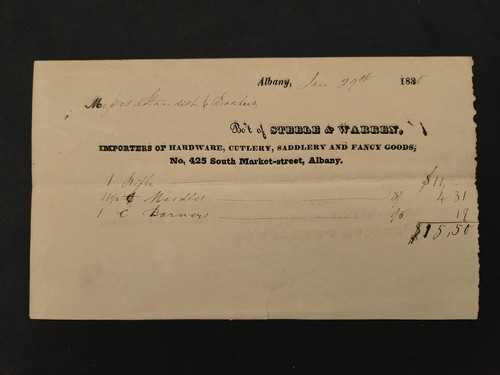 Albany, Jan 29th 183
Mess
Bo't of STEELE & WARREN,
IMPORTERS OF HARDWARE, CUTLERY, SADDLERY AND FANCY GOODS,
No, 425 South Market-street, Albany.
1 Rifle $11,
Needles 3/ 4 31
1 C Darners 1/6 19
$15,50